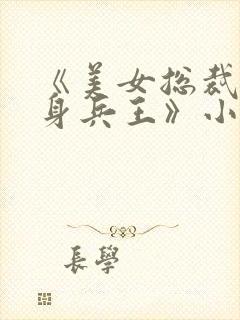 《美女总裁
身兵王》小
長學